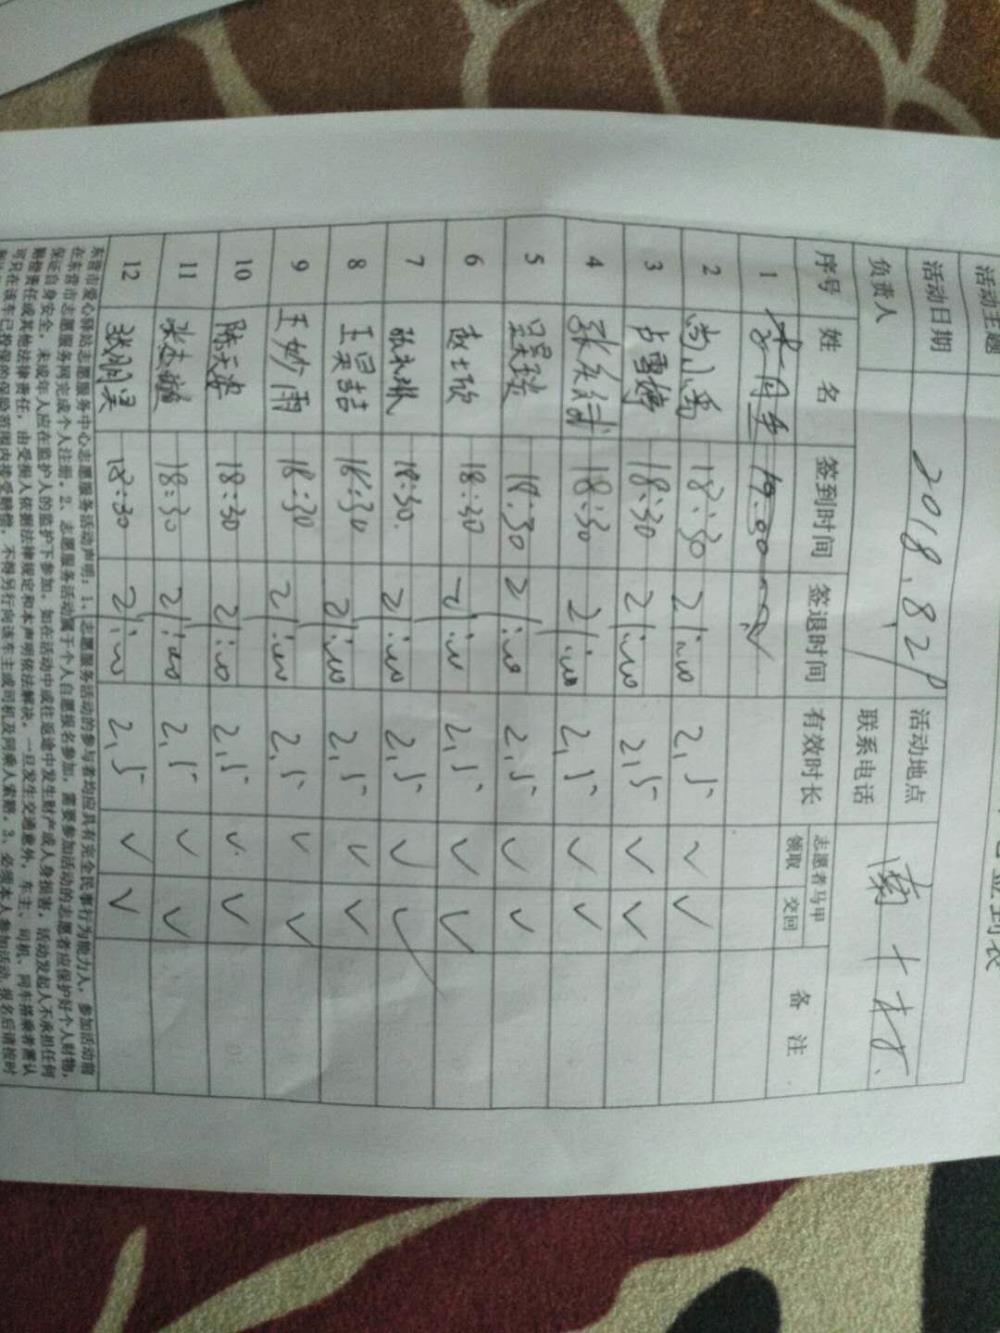 签到表
活动主题
活动日期 2018.8.29 活动地点
负责人 联系电话
序号 姓名 签到时间 签退时间 有效时长 志愿者马甲 领取 交回 备注
1
2 尚小禹 18:30 21:00 2.5 ✓ ✓
3 占雪婷 18:30 21:00 2.5 ✓ ✓
4 18:30 21:00 2.5 ✓ ✓
5 18:30 21:00 2.5 ✓ ✓
6 赵士欣 18:30 21:00 2.5 ✓ ✓
7 18:30. 21:00 2.5 ✓ ✓
8 王昊喆 18:30 21:00 2.5 ✓ ✓
9 王妙雨 18:30 21:00 2.5 ✓ ✓
10 陈天安 18:30 21:00 2.5 ✓ ✓
11 18:30 21:00 2.5 ✓ ✓
12 18:30 21:00 2.5 ✓ ✓
东营市爱心驿站志愿服务中心志愿服务活动声明：1、志愿服务活动的参与者均应具有完全民事行为能力人，参加活动前
在东营市志愿服务网完成个人注册。2、志愿服务活动属于个人自愿报名参加，需要参加活动的志愿者应保护好个人财物，
保证自身安全，未成年人应在监护人的监护下参加。如在活动中或往返途中发生财产或人身损害，活动发起人不承担任何
赔偿责任或其他法律责任，由受损人依据法律规定和本声明依法解决。一旦发生交通意外，车主、司机、同车搭乘者需认
可只在该车已投保的保险范围内接受赔偿，不得另行向该车主或司机及同乘人索赔。3、必须本人参加活动，报名后请按时